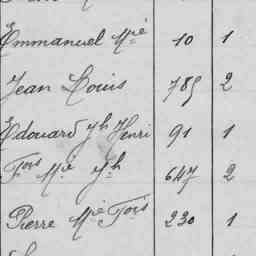 Emmanuel Mié 10 1
Jean Louis 785 2
Edouard Jh Henri 91 1
Fois Mié Jh 647 2
Pierre Mie Fois 230 1